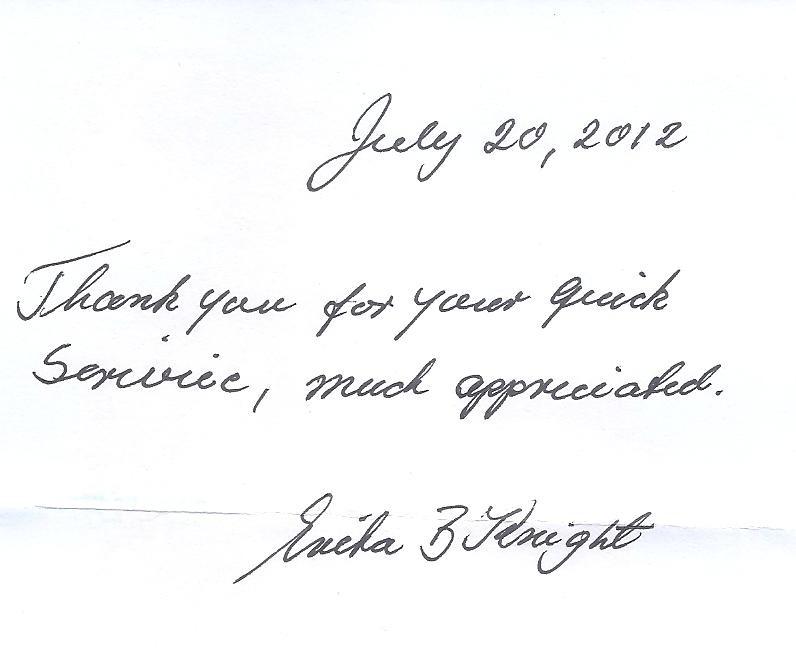 July 20, 2012
Thank you for your quick
Service, much appreciated.
Erika B Knight